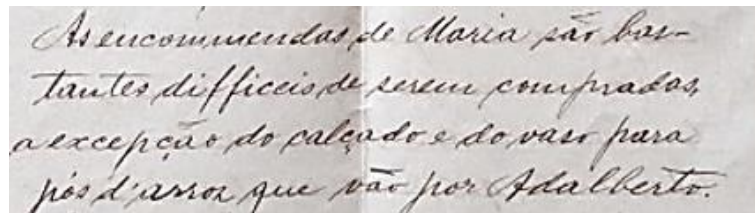 As encommendas de Maria são bas-
tantes difficeis de serem compradas,
a excepção do calçado e do vaso para
pós d'arroz que vão por Adalberto.